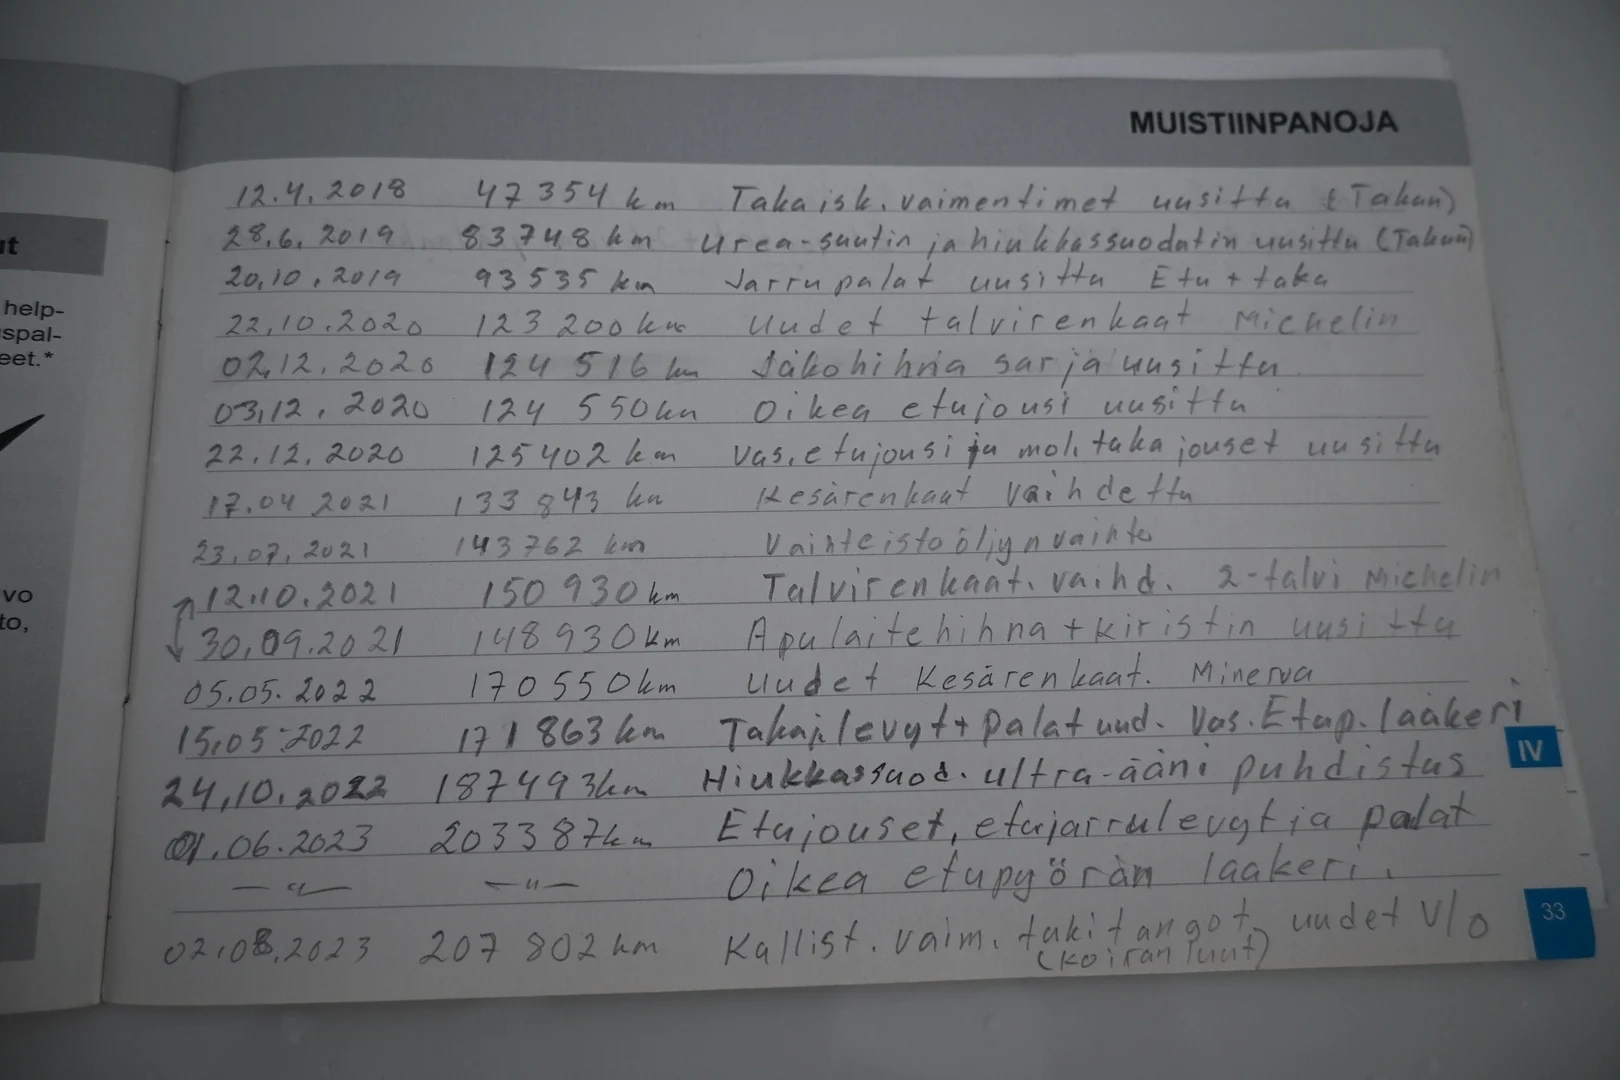 ut
help-
spal-
eet.*
vo
to,
MUISTIINPANOJA
12.4.2018 47354 km Takaisk.vaimentimet uusittu (Takuu)
28.6.2019 83748 km Urea-suutin ja hiukkassuodatin uusittu (Takuu)
20.10.2019 93535 km Jarrupalat uusittu Etu + taka
22.10.2020 123 200 km Uudet talvirenkaat Michelin
02.12.2020 124 516 km Jakohihna sarja uusittu
03.12.2020 124 550 km Oikea etujousi uusittu
22.12.2020 125402 km Vas.etujousi ja mol.takajouset uusittu
17.04 2021 133 843 km Kesärenkaat vaihdettu
23.07.2021 143762 km Vaihteistoöljyn vaihto
12.10.2021 150 930 km Talvirenkaat.vaihd. 2-talvi Michelin
30.09.2021 148930 km Apulaitehihna + kiristin uusittu
05.05.2022 170550 km Uudet Kesärenkaat. Minerva
15.05 2022 171863 km Takaj.levyt + palat uud. Vas.Etup.laakeri
24.10.2022 187493km Hiukkassuod. ultra-ääni puhdistus
01.06.2023 203387km Etujouset, etujarrulevyt ja palat
—"— —"— Oikea etupyörän laakeri.
02.08.2023 207 802 km Kallist. vaim. tukitangot, uudet V/O
(koiran luut)
IV
33